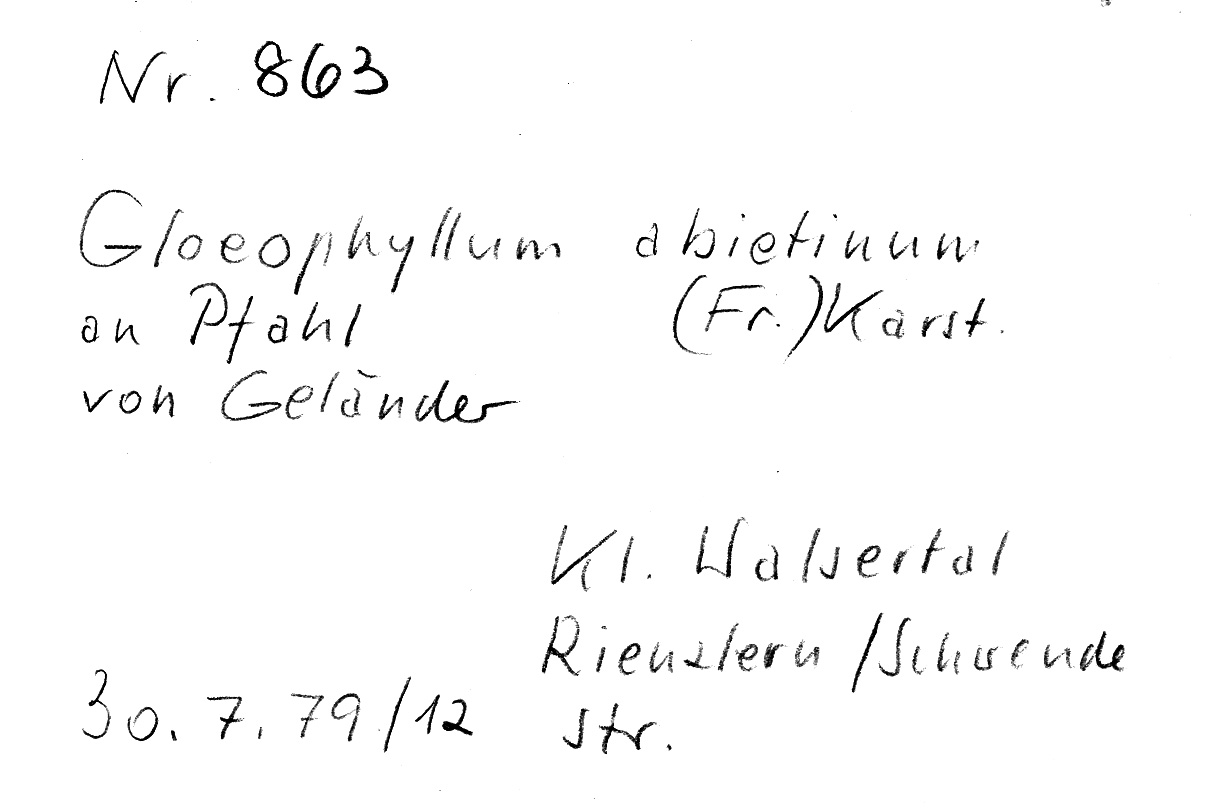 Nr. 863
Gloeophyllum abietinum
an Pfahl (Fr.) Karst.
von Geländer
Kl. Walsertal
Rienzlern / Schwende
30. 7. 79/12 str.